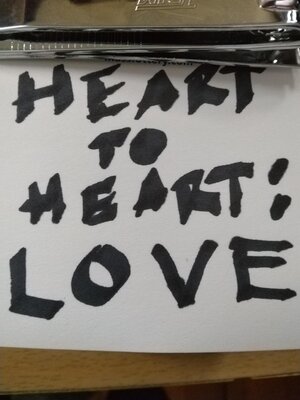 HEART
TO
HEART:
LOVE